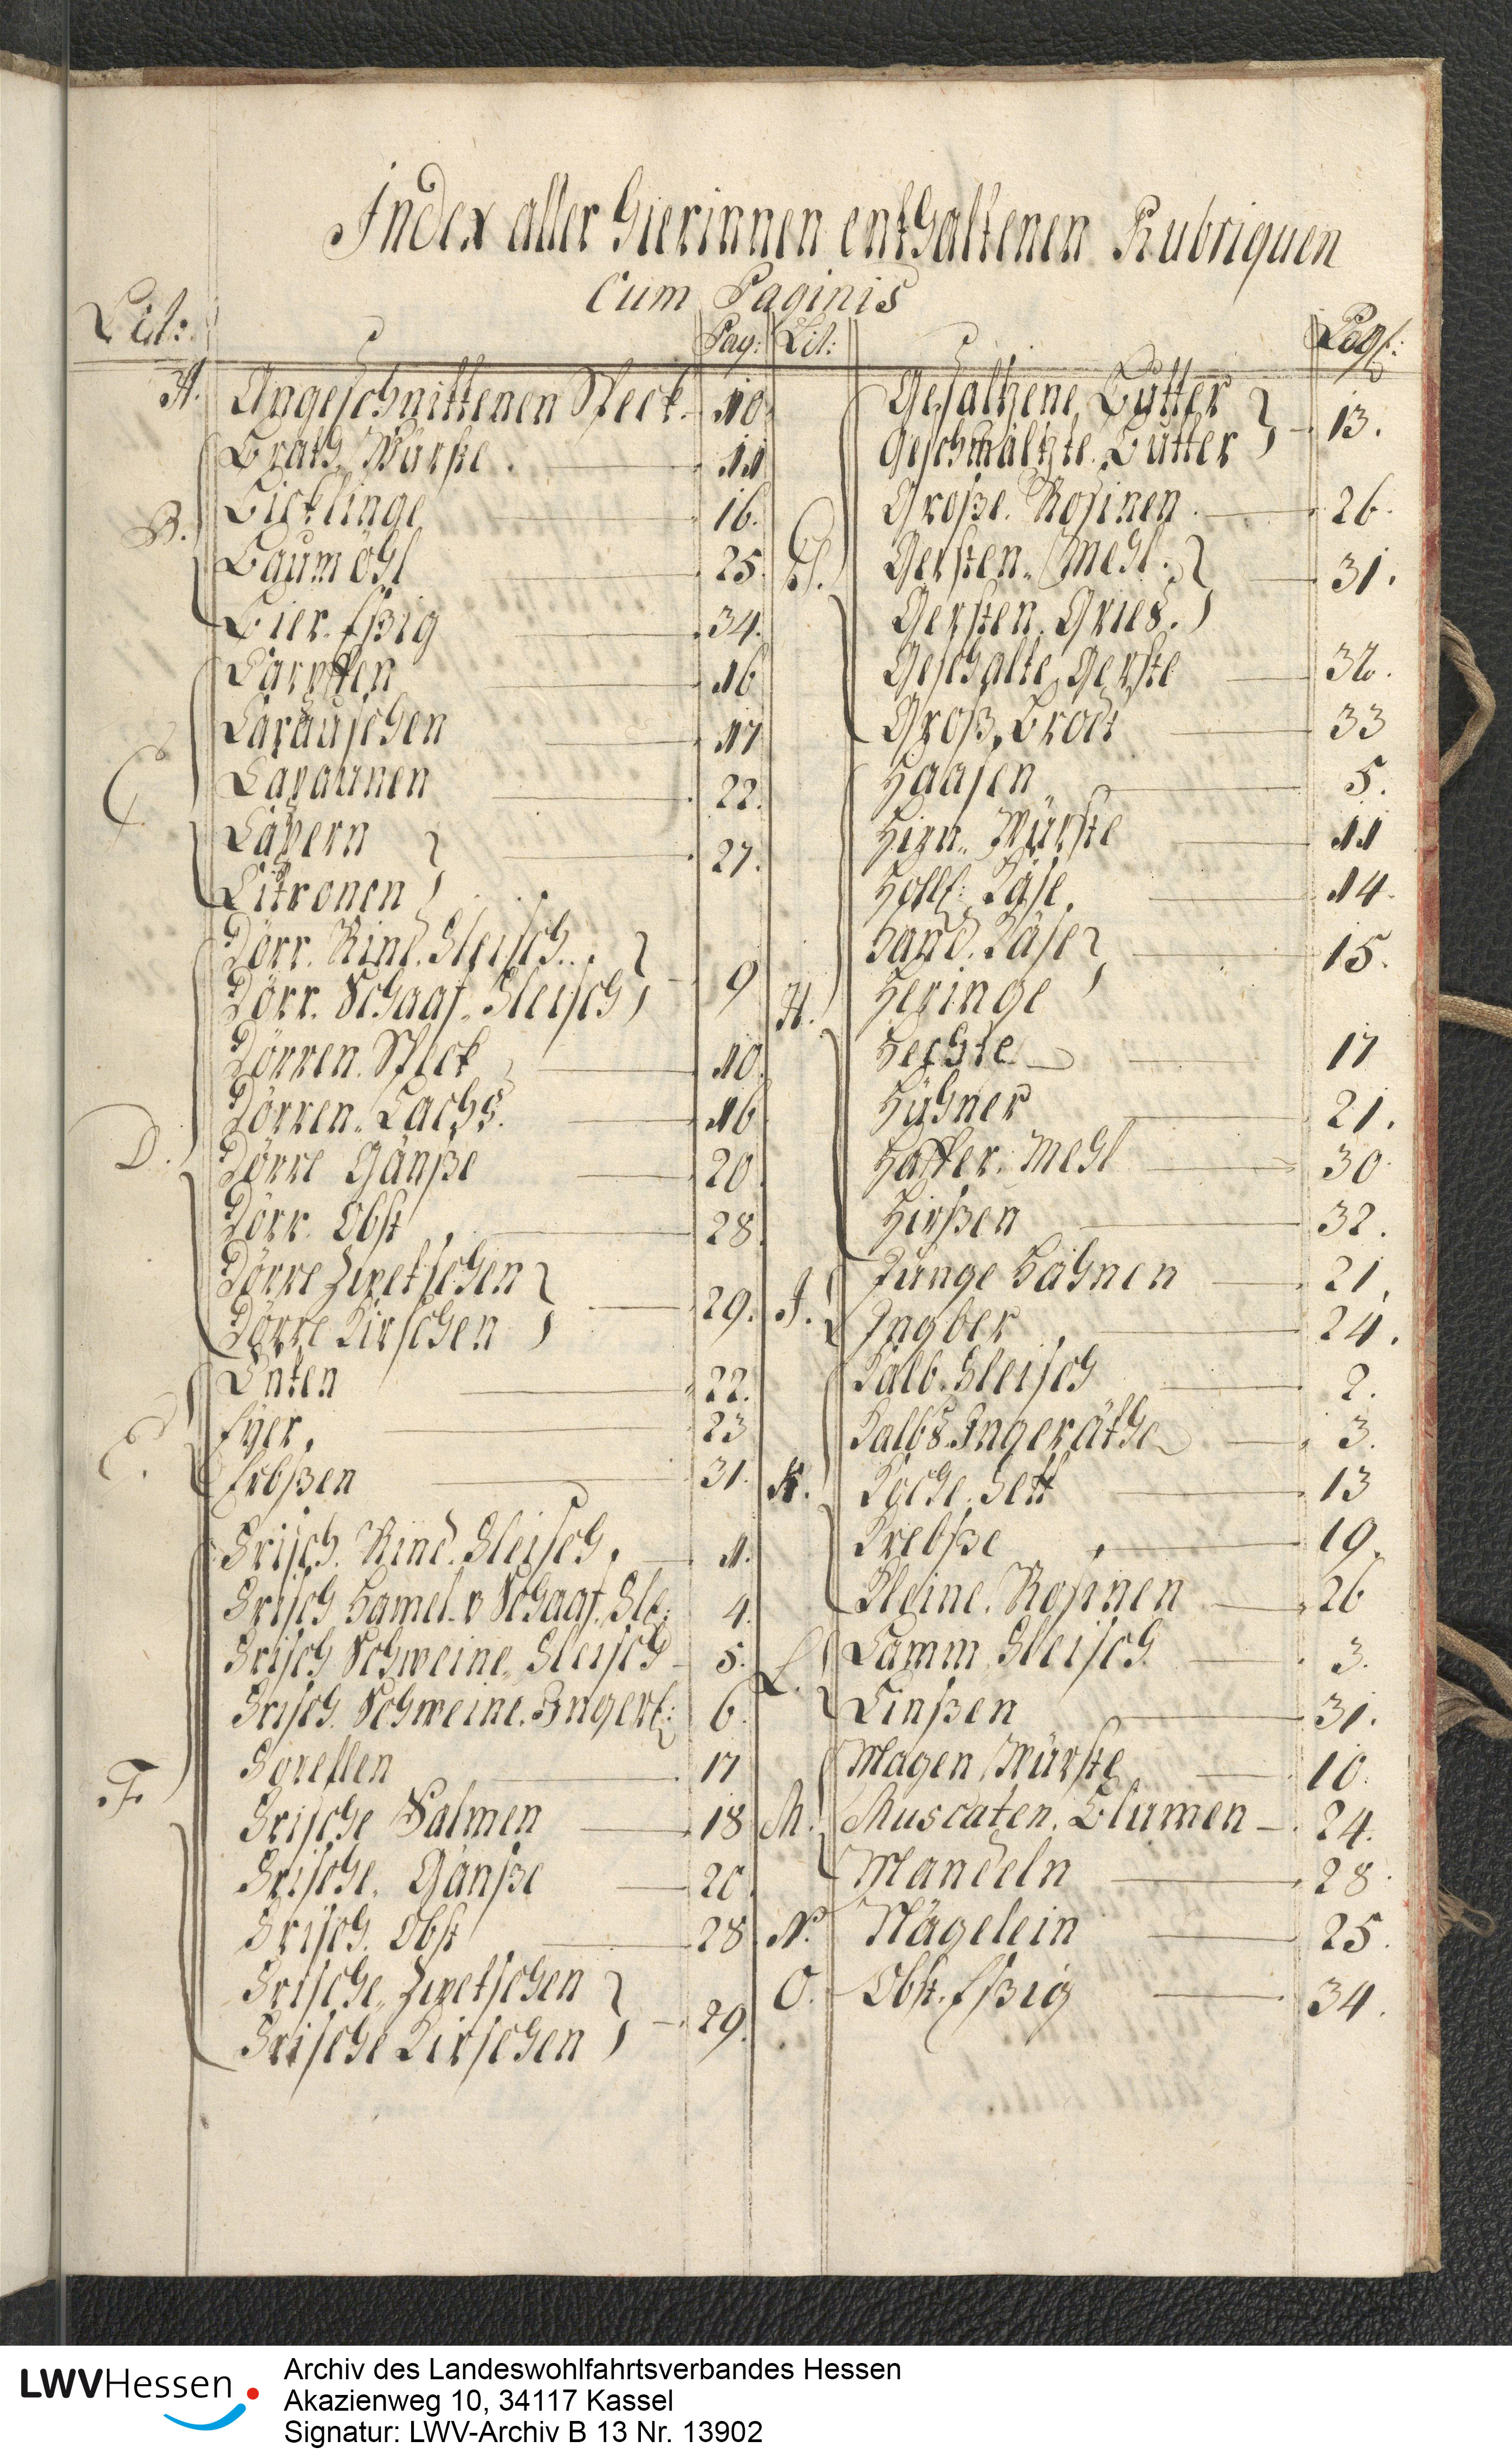 Index aller hierinnen enthaltenen Rubriquen
Cum Paginis
Lit: Pag: Lit: Pag:
A. Angeschnittenen Speck. 10.
B. Brath Würste. 11
Bicklinge 16.
Baumöhl 25.
Bier Eßig 34.
C. Carpffen 16
Carauschen 17
Capaunen 22.
Capern
Citronen 27.
D. Dörr. Rind. Fleisch.
Dörr. Schaaf. Fleisch 9
Dörren. Speck 10.
Dörren. Lachs. 16
Dörre Gänße 20.
Dörr. Obst 28.
Dörre Zwetschen
Dörre Kirschen 29.
E. Enten 22.
Eyer. 23
Erbßen 31.
F. Frisch. Rind. Fleisch. 1.
Frisch Hamel. v Schaaf. Fle: 4.
Frisch Schweine. Fleisch 5.
Frisch. Schweine. Inger: 6.
Forellen 17
Frische Salmen 18
Frische. Gänße 20.
Frisch. Obst 28
Frische. Zwetschen
Frische Kirschen 29.
G. Gesaltzene Butter
Geschmältzte. Butter 13.
Große. Rosinen. 26.
Gersten. Mehl.
Gersten. Gries. 31.
Geschälte Gerste 32.
Groß. Brodt 33
H. Haasen 5.
Hirn. Würste 11
Holl: Käse. 14.
Hand. Käse
Heringe 15.
Hechte 17
Hühner 21.
Haffer. Mehl 30.
Hirßen 32.
J. Junge Hahnen 21.
Ingber 24.
K. Kalb. Fleisch 2.
Kalbs. Ingeräthe 3.
Koche. Fett 13
Krebße 19.
Kleine. Rosinen 26
L. Lamm Fleisch 3.
Linßen 31.
M. Magen Würste 10.
Muscaten. Blumen 24.
Mandeln 28.
N. Nägelein 25.
O. Obst. Eßig 34.
LWVHessen
Archiv des Landeswohlfahrtsverbandes Hessen
Akazienweg 10, 34117 Kassel
Signatur: LWV-Archiv B 13 Nr. 13902